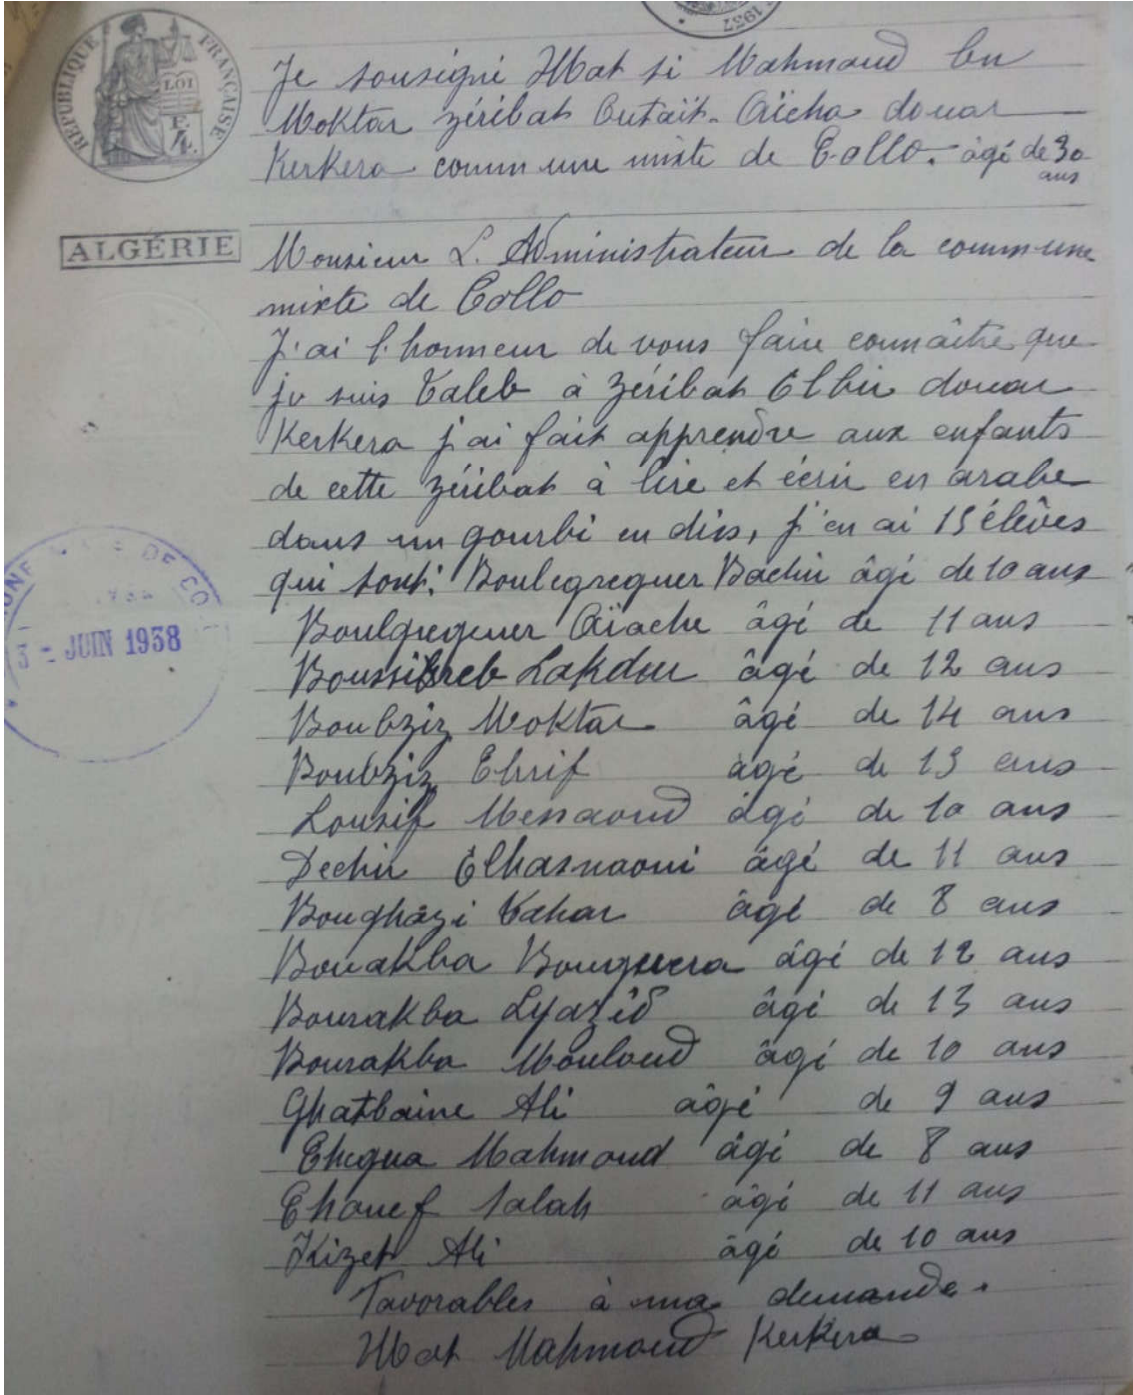 1937
RÉPUBLIQUE FRANÇAISE
LOI
Je sousigné Hbat si Mahmoud ben
Moktar zéribat Outaït-Aïcha douar
Kerkera commune mixte de Collo. âgé de 30
ans
ALGÉRIE
Monsieur L'Administrateur de la commune
mixte de Collo
J'ai l'honneur de vous faire connaître que
je suis Taleb à zéribat Elbir douar
Kerkera j'ai fait apprendre aux enfants
de cette zéribat à lire et écrir en arabe
dans un gourbi en diss, j'en ai 15 élèves
qui sont: Boulegreguer Bachir âgé de 10 ans
Boulgreguer Aïache âgé de 11 ans
3 - JUIN 1938
Lakdar âgé de 12 ans
Boubziz Moktar âgé de 14 ans
Boubziz Chrif âgé de 13 ans
Lousif Messaoud âgé de 10 ans
Dechir Elhasnaoui âgé de 11 ans
Boughazi Tahar âgé de 8 ans
Bouakba Bouguerra âgé de 12 ans
Bourakba Lyazîd âgé de 13 ans
Bourakba Mouloud âgé de 10 ans
Ghatbaine Ali âgé de 9 ans
Mahmoud âgé de 8 ans
Chouef Salah âgé de 11 ans
Kizet Ali âgé de 10 ans
Favorables à ma demande.
Hbat Mahmoud Kerkera